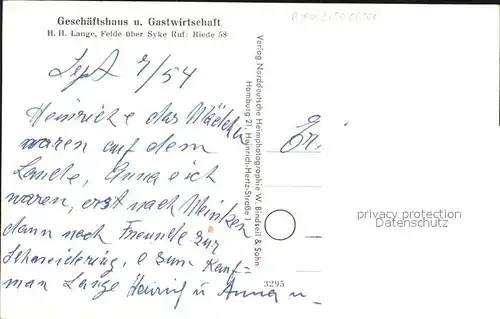 Geschäftshaus u. Gastwirtschaft
H. H. Lange, Felde über Syke Ruf: Riede 58
Sept 7/54
Heinrich e das Mädchen
waren auf dem
Lande, Anna e ich
waren, erst nach
dann nach Freunde zur
Schneiderin, e zum Kauf=
man Lange Heinrich u Anna u
Verlag Norddeutsche Heimphotographie W. Bindseil & Sohn
Hamburg 21, Heinrich-Hertz-Straße 1
3295
privacy protection
VPS